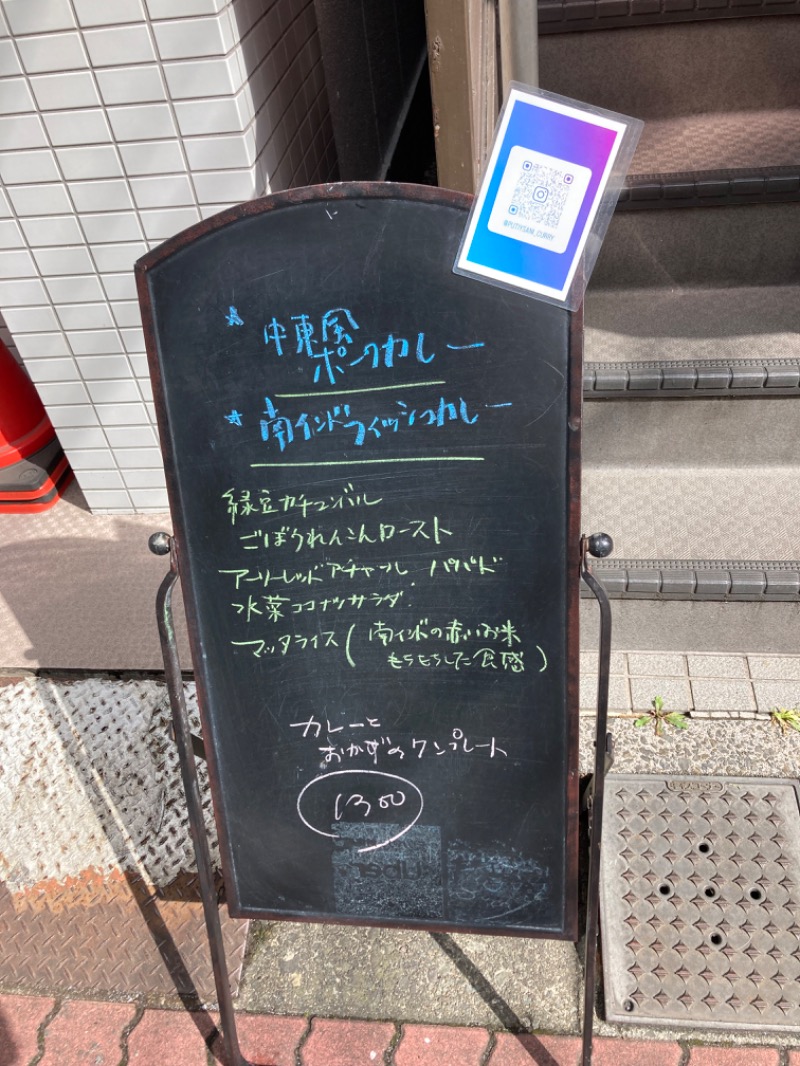 @PUTIYSAM_CURRY
* 中東風
ポークカレー
* 南インドフィッシュカレー
緑豆カチュンバル
ごぼうれんこんロースト
アーリーレッドアチャール、パパド
水菜ココナッツサラダ
マッタライス(南インドの赤いお米
もちもちした食感)
カレーと
おかずのワンプレート
1300